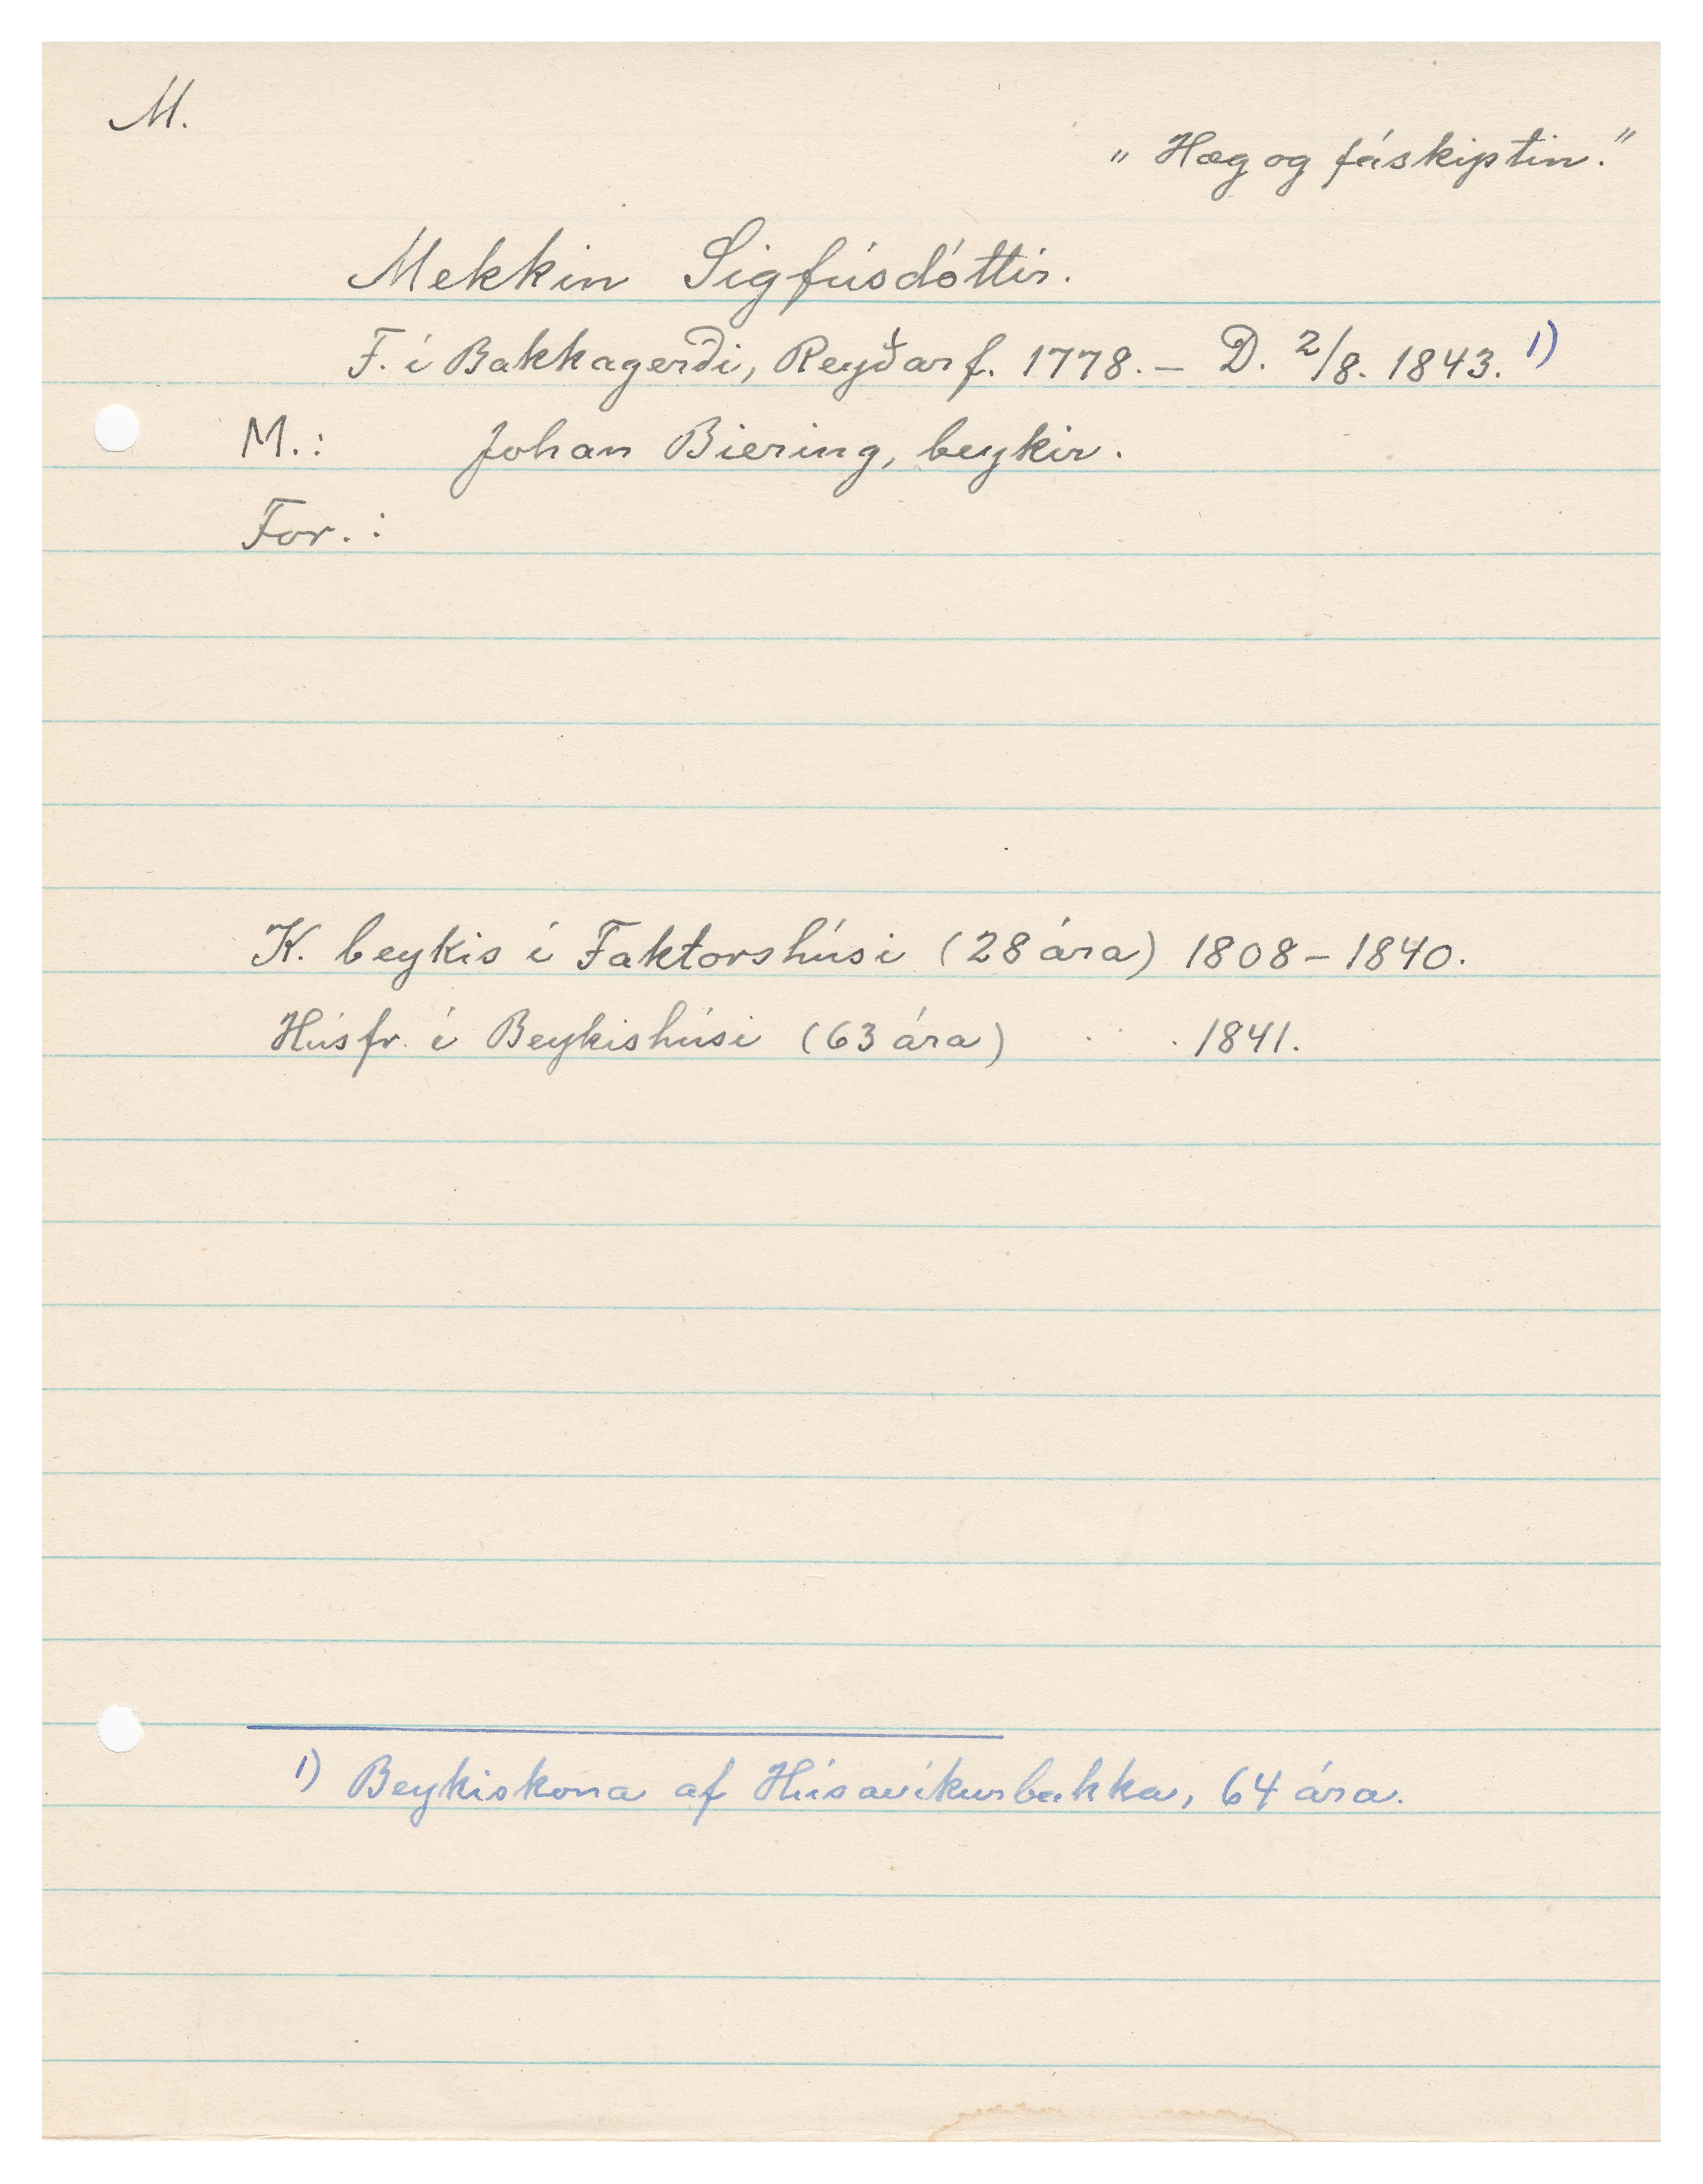 M.
„Hæg og fáskiptin."
Mekkin Sigfúsdóttir.
F. í Bakkagerði, Reyðarf. 1778. — D. 2/8. 1843. 1)
M.: Johan Biering, beykir.
For.:
K. beykis í Faktorshúsi (28 ára) 1808 – 1840.
Húsfr. í Beykishúsi (63 ára) 1841.
1) Beykiskona af Húsavíkurbakka, 64 ára.